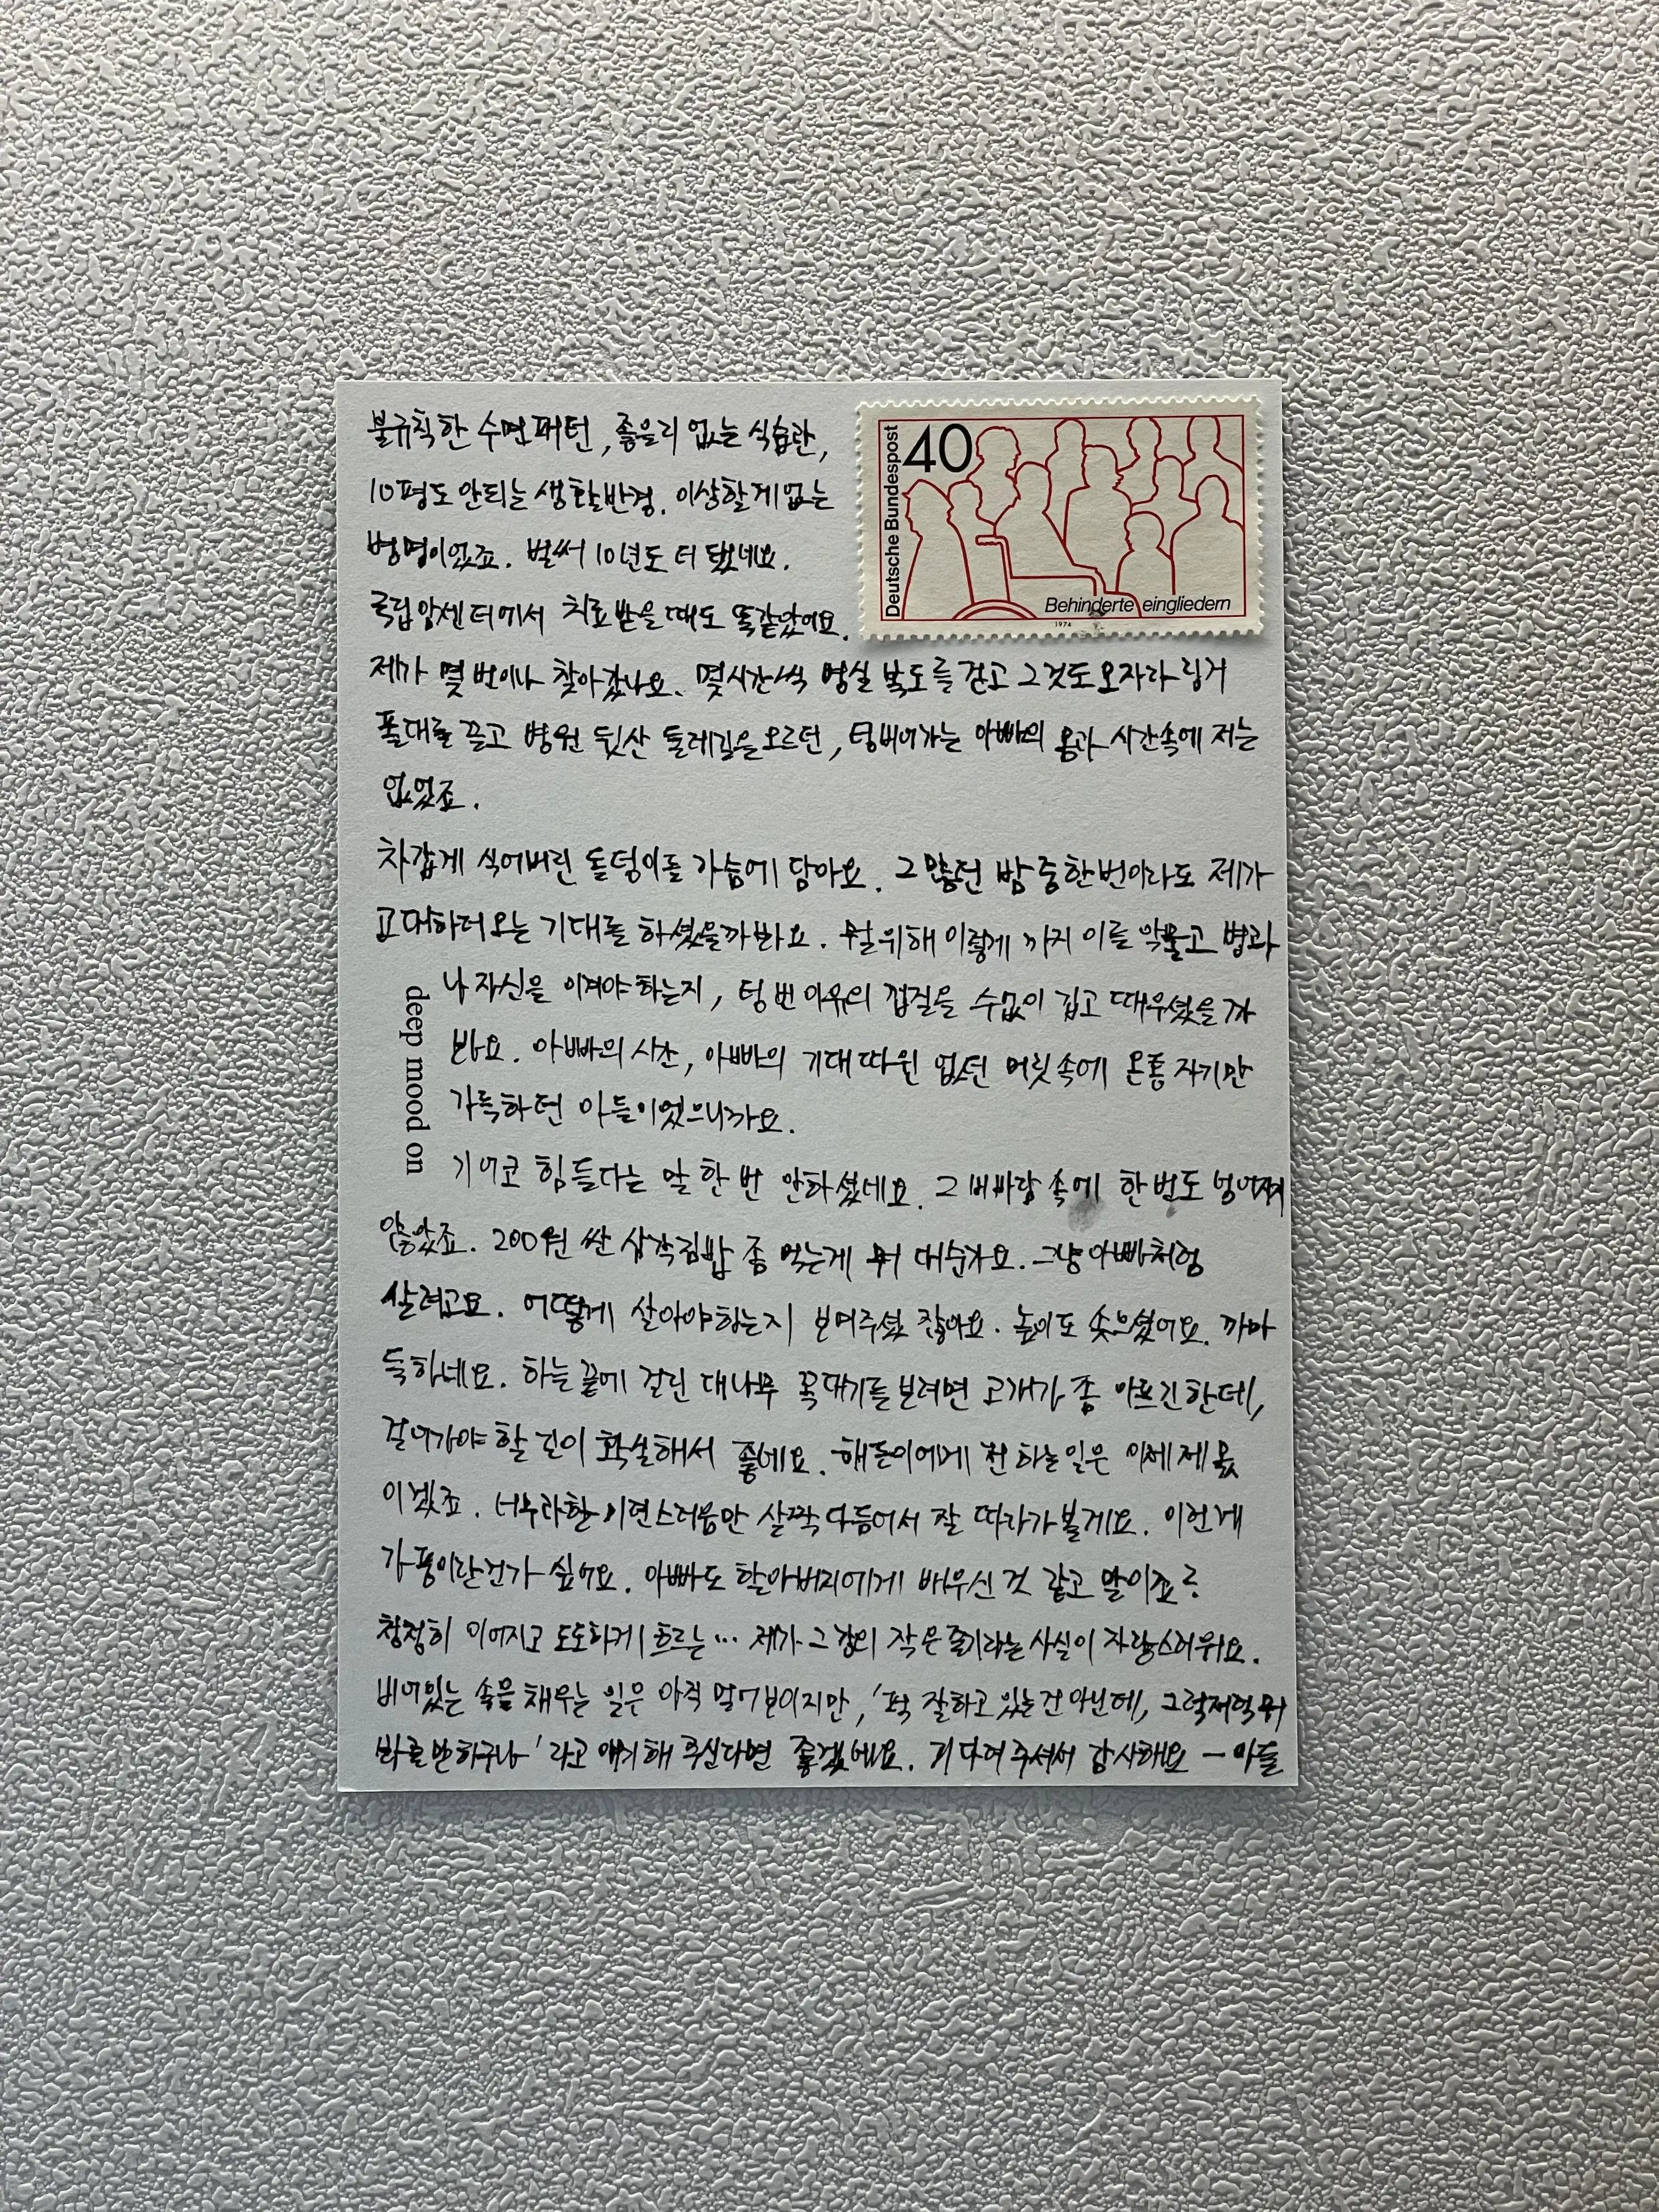 불규칙한 수면패턴, 좋을리 없는 식습관,
10평도 안되는 생활반경. 이상할게 없는
병명이었죠. 벌써 10년도 더 됐네요.
국립암센터에서 치료받을때도 똑같았어요.
제가 몇 번이나 찾아갔나요. 몇시간씩 병실 복도를 걷고 그것도 모자라 링거
폴대를 끌고 병원 뒷산 둘레길을 오르던, 텅비어가는 아빠의 몸과 시간속에 저는
없었죠.
차갑게 식어버린 돌덩이를 가슴에 담아요. 그 많던 밤 중 한번이라도 제가
교대하러오는 기대를 하셨을까봐요. 뭘위해 이렇게 까지 이를 악물고 병과
나 자신을 이겨야 하는지, 텅 빈 이유의 껍질을 수없이 깁고 때우셨을까
봐요. 아빠의 시간, 아빠의 기대 따윈 없던 머릿속에 온통 자기만
가득하던 아들이었으니까요.
기어코 힘들다는 말 한 번 안하셨네요. 그 비바람 속에 한번도
않았죠. 200원 싼 삼각김밥 좀 먹는게 뭐 대순가요. 그냥 아빠처럼
살려고요. 어떻게 살아야하는지 보여주셨잖아요. 높이도 솟으셨어요. 까마
득하네요. 하늘 끝에 걸린 대나무 꼭대기를 보려면 고개가 좀 아프긴한데,
걸어가야 할 길이 확실해서 좋네요. 해든이에게 전하는일은 이제 제 몫
이겠죠. 너무라할 이면스러움만 살짝 다듬어서 잘 따라가볼게요. 이런게
가풍이란건가 싶어요. 아빠도 할아버지에게 배우신 것 같고 말이죠:
창창히 이어지고 도도하게 흐르는... 제가 그 강의 작은 줄기라는 사실이 자랑스러워요.
비어있는 속을 채우는 일은 아직 멀어보이지만, '퍽 잘하고 있는건 아닌데, 그럭저럭 뭐
봐줄만하구나' 라고 얘기해 주신다면 좋겠네요. 기다려주셔서 감사해요 - 아들
deep mood on
Deutsche Bundespost
40
Behinderte eingliedern
1974